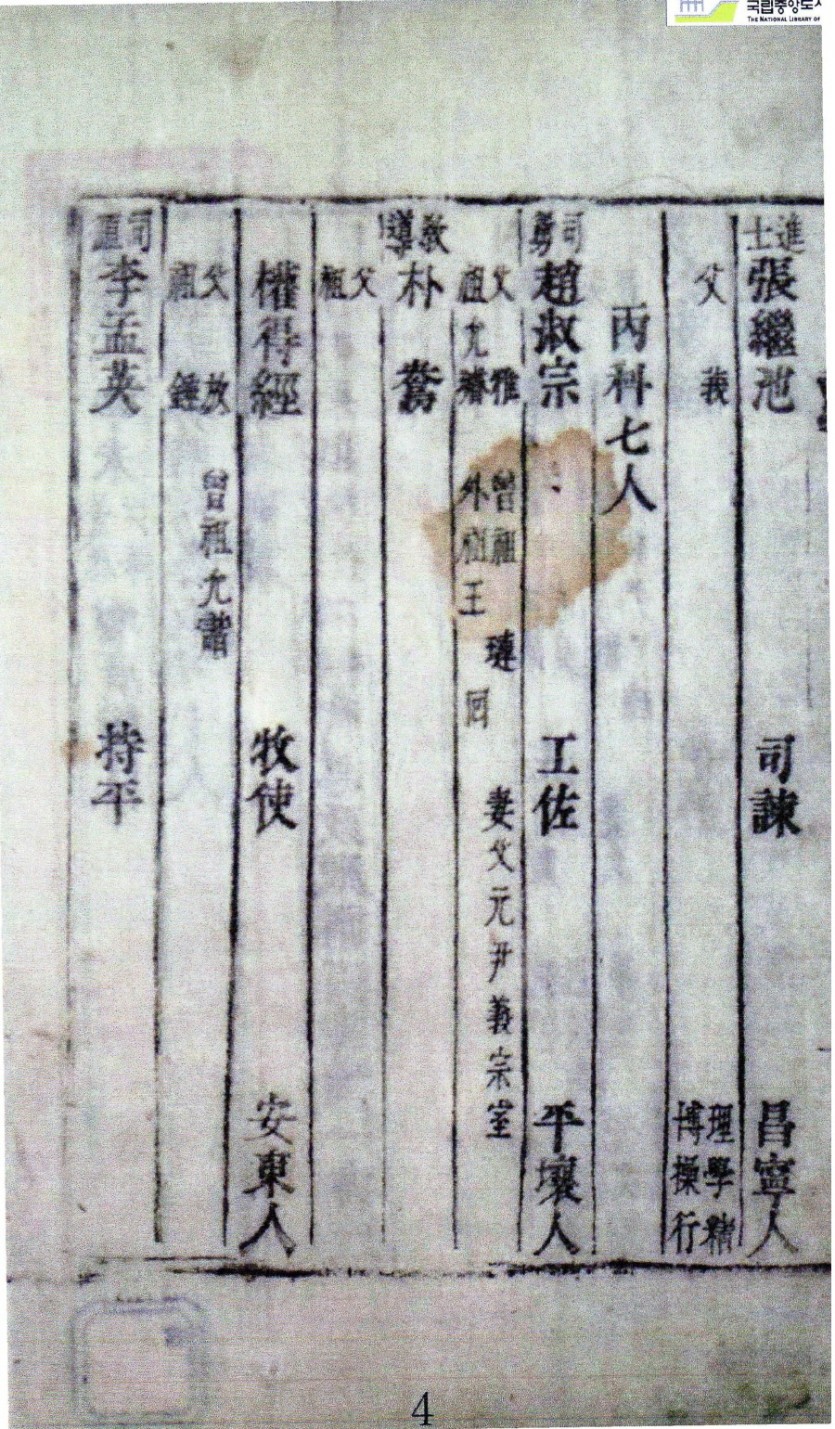 국립중앙도서
THE NATIONAL LIBRARY OF
進士 張繼池 司諫 昌寧人
父 莪 理學精博操行
丙科七人
司勇 趙淑宗 工佐 平壤人
父 雅 曾祖 璉 妻父元尹義宗室
祖允瀋 外祖王 回
敎導 朴 鶱
父
祖
權得經 牧使 安東人
父 放 曾祖允諧
祖 錘
司直 李孟英 持平
4